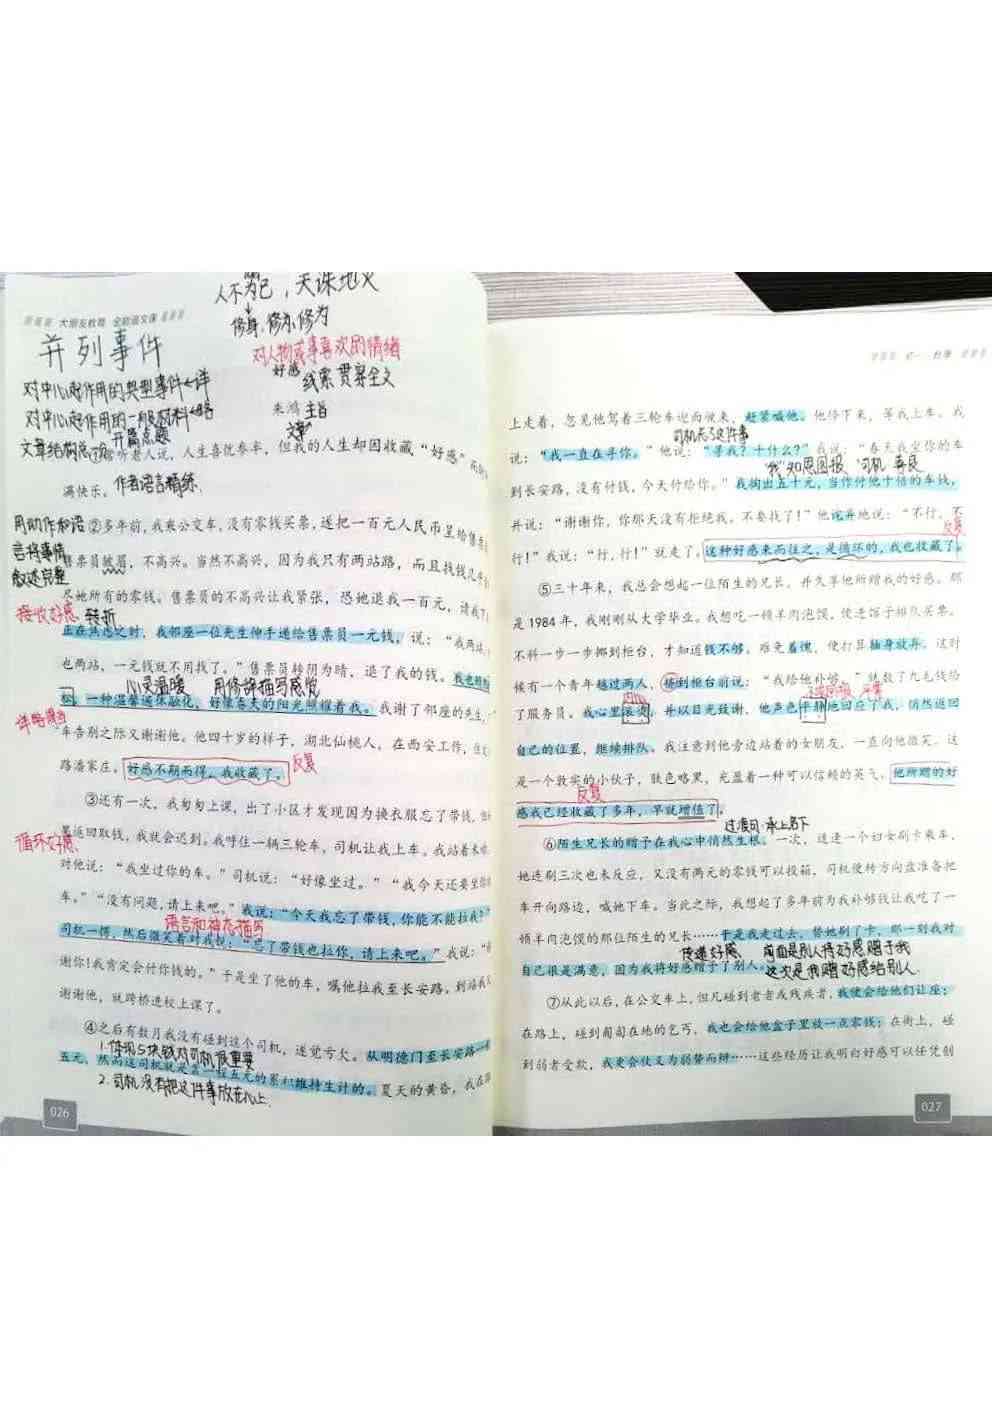 人不为己，天诛地灭
修身、修亦、修为
大朋友教育 全能语文课
并列事件
对人物或事喜欢的情绪
好感 线索 贯穿全文
对中心起作用的典型事件←详
对中心起作用的一般材料←略
朱鸿 主旨
文章结构总
开篇点题
①常听老人说，人生喜忧参半，但我的人生却因收藏“好感”而
满快乐。
作者语言精练
用动作和语
言将事情
叙述完整
②多年前，我乘公交车，没有零钱买票，遂把一百元人民币呈给售票
售票员皱眉，不高兴。当然不高兴，因为我只有两站路，而且找钱几乎
尽她所有的零钱。售票员的不高兴让我紧张，恐她退我一百元，请我下
接收好感 转折
正在焦虑之时，我邻座一位先生伸手递给售票员一元钱，说：“我两站
也两站，一元钱就不用找了。”售票员转阴为晴，退了我的钱。我也
心灵温暖 用修辞描写感觉
一种温馨通体融化，好像春天的阳光照耀着我。我谢了邻座的先生，
详略得当
车告别之际又谢谢他。他四十岁的样子，湖北仙桃人，在西安工作，住
路潘家庄。好感不期而得，我收藏了。
反复
③还有一次，我匆匆上课，出了小区才发现因为换衣服忘了带钱，
循环好感
果返回取钱，我就会迟到。我呼住一辆三轮车，司机让我上车。我站着未
对他说：“我坐过你的车。”司机说：“好像坐过。”“我今天还要坐你
车。”“没有问题，请上来吧。”我说：“今天我忘了带钱，你能不能拉我？”
语言和神态描写
司机一愣，然后微笑着对我说：“忘了带钱也拉你，请上来吧。”我说：“
谢你！我肯定会付你钱的。”于是坐了他的车，嘱他拉我至长安路。到站我
谢谢他，就跨桥进校上课了。
④之后有数月我没有碰到这个司机，遂觉亏欠。从明德门至长安路一
1.体现5块钱对司机很重要
五元，然而这司机就是靠一程五元的累积维持生计的。夏天的黄昏，我在
2.司机没有把这件事放在心上
026
初一·秋季
上走着，忽见他驾着三轮车迎面骏来，赶紧喊他。他停下来，等我上车。我
司机忘了这件事
说：“我一直在寻你。”他说：“寻我？干什么？”我说：“春天我坐你的车
“我”知恩图报 司机 善良
到长安路，没有付钱，今天付给你。”我掏出五十元，当作付他十倍的车钱，
并说：“谢谢你，你那天没有拒绝我。不要找了！”他诧异地说：“不行，不
反复
行！”我说：“行，行！”就走了。这种好感来而往之，是循环的，我也收藏了。
⑤三十年来，我总会想起一位陌生的兄长，并久享他所赠我的好感。那
是1984年，我刚刚从大学毕业。我想吃一顿羊肉泡馍，便进馆子排队买票。
不料一步一步挪到柜台，才知道钱不够。难免羞愧，便打算抽身放弃。这时
候有一个青年越过两人，挤到柜台前说：“我给他补够。”就数了九毛钱给
了服务员。我心里滚烫，并以目光致谢，他声色平静地回应了我，悄然返回
自己的位置，继续排队。我注意到他旁边站着的女朋友，一直向他微笑。这
是一个敦实的小伙子，肤色略黑，充盈着一种可以信赖的英气。他所赠的好
反复
感我已经收藏了多年，早就增值了。
过渡句·承上启下
⑥陌生兄长的赠予在我心中悄然生根。一次，适逢一个妇女刷卡乘车，
她连刷三次也未反应，又没有两元的零钱可以投箱，司机便转方向盘准备把
车开向路边，喊她下车。当此之际，我想起了多年前为我补够钱让我吃了一
顿羊肉泡馍的那位陌生的兄长……于是我走过去，替她刷了卡，那一刻我对
传递好感 前面是别人将好感赠于我
自己很是满意，因为我将好感赠予了别人。
这次是我赠好感给别人
⑦从此以后，在公交车上，但凡碰到老者或残疾者，我便会给他们让座；
在路上，碰到匍匐在地的乞丐，我也会给他盒子里放一点零钱；在街上，碰
到弱者受欺，我更会仗义为弱势而辩……这些经历让我明白好感可以任凭创
027